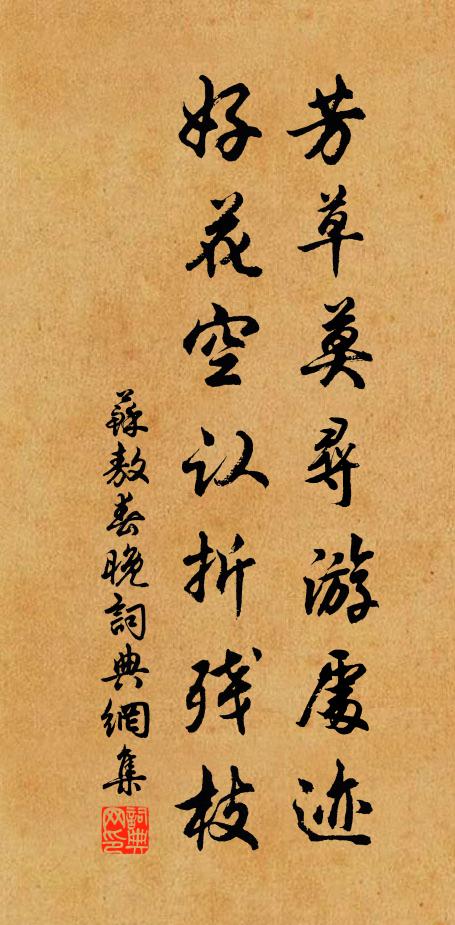 芳草莫尋游處迹
好花空认折残枝
蘇敖春晚詞典網集
詞典網印